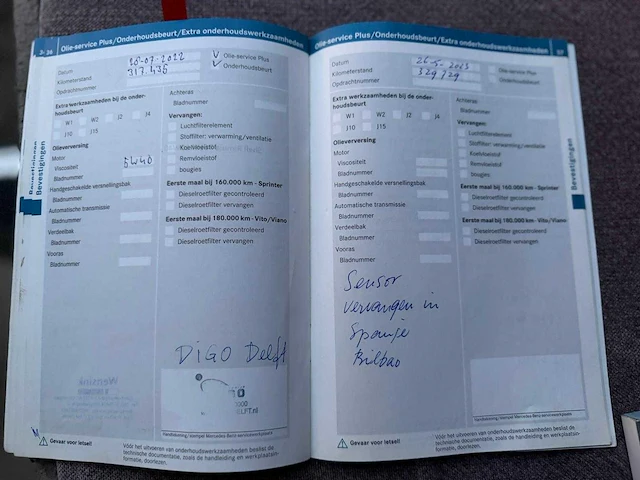 2- 26
Olie-service Plus/Onderhoudsbeurt/Extra onderhoudswerkzaamheden
Datum
Kilometerstand 317.436
Opdrachtnummer
√ Olie-service Plus
√ Onderhoudsbeurt
Extra werkzaamheden bij de onder-
houdsbeurt
W1 W2 J2 J4
J10 J15
Olieverversing
Motor
Viscositeit 5W40
Bladnummer
Handgeschakelde versnellingsbak
Bladnummer
Automatische transmissie
Bladnummer
Verdeelbak
Bladnummer
Vooras
Bladnummer
Achteras
Bladnummer
Vervangen:
Luchtfilterelement
Stoffilter: verwarming/ventilatie
Koelvloeistof
Remvloeistof
bougies
Eerste maal bij 160.000 km - Sprinter
Dieselroetfilter gecontroleerd
Dieselroetfilter vervangen
Eerste maal bij 180.000 km - Vito/Viano
Dieselroetfilter gecontroleerd
Dieselroetfilter vervangen
DIGO Delft
LFT.nl
Wensink
Handtekening/stempel Mercedes-Benz-servicewerkplaats
Gevaar voor letsel!
Vóór het uitvoeren van onderhoudswerkzaamheden beslist de
technische documentatie, zoals de handleiding en werkplaatsin-
formatie, doorlezen.
Bevestigingen
Bevestigingen
Olie-service Plus/Onderhoudsbeurt/Extra onderhoudswerkzaamheden
27
Datum
Kilometerstand 329729
Opdrachtnummer
Olie-service Plus
Onderhoudsbeurt
Extra werkzaamheden bij de onder-
houdsbeurt
W1 W2 J2 J4
J10 J15
Olieverversing
Motor
Viscositeit
Bladnummer
Handgeschakelde versnellingsbak
Bladnummer
Automatische transmissie
Bladnummer
Verdeelbak
Bladnummer
Vooras
Bladnummer
Achteras
Bladnummer
Vervangen:
Luchtfilterelement
Stoffilter: verwarming/ventilatie
Koelvloeistof
Remvloeistof
bougies
Eerste maal bij 160.000 km - Sprinter
Dieselroetfilter gecontroleerd
Dieselroetfilter vervangen
Eerste maal bij 180.000 km - Vito/Viano
Dieselroetfilter gecontroleerd
Dieselroetfilter vervangen
Sensor
vervangen in
Spanje
Bilbao
Handtekening/stempel Mercedes-Benz-servicewerkplaats
Gevaar voor letsel!
Vóór het uitvoeren van onderhoudswerkzaamheden beslist de
technische documentatie, zoals de handleiding en werkplaatsin-
formatie, doorlezen.
Bevestigingen